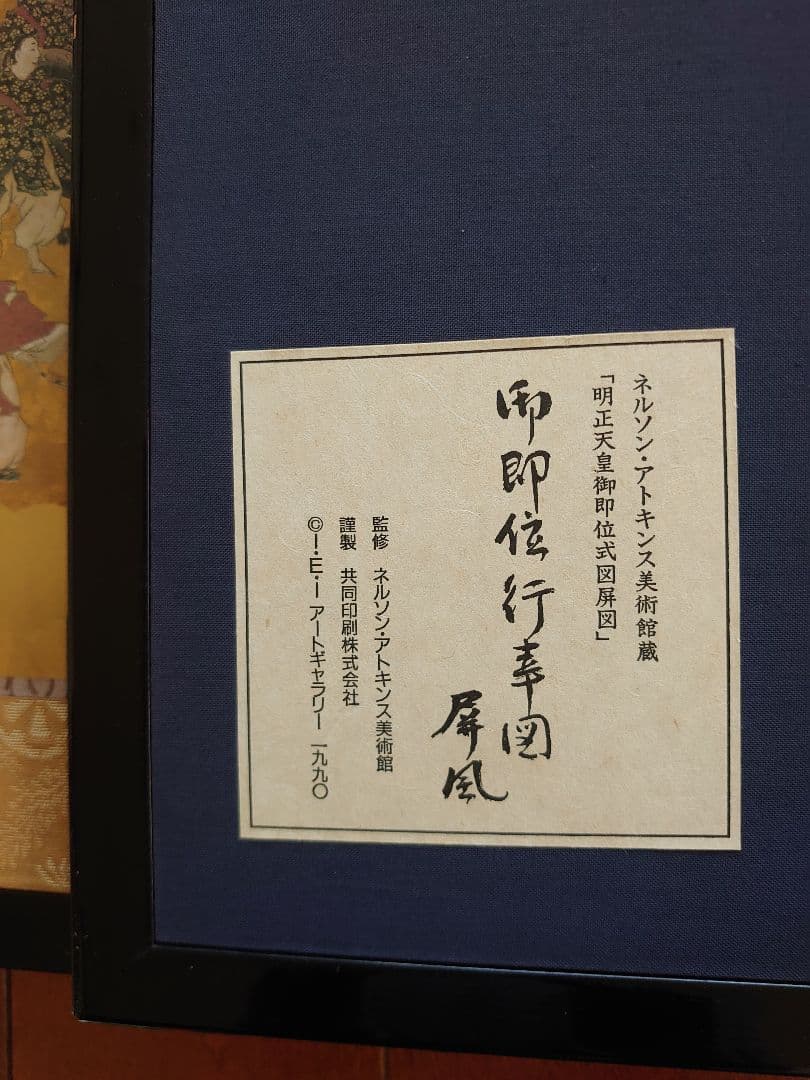 ネルソン・アトキンス美術館蔵
「明正天皇御即位式図屏図」
御即位行幸図
屏風
監修 ネルソン・アトキンス美術館
謹製 共同印刷株式会社
©I・E・I アートギャラリー 一九九〇